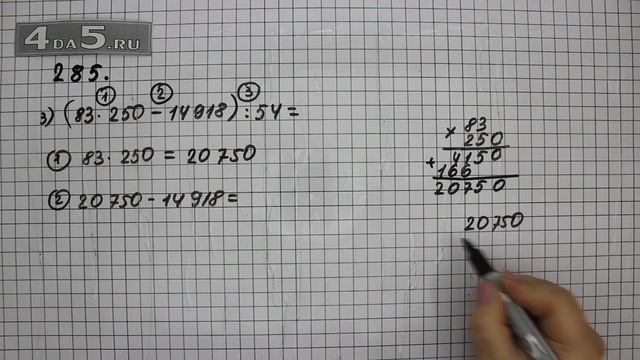 4DA5.RU
285.
① ② ③
3) (83 · 250 − 14 918) : 54 =
① 83 · 250 = 20 750
② 20 750 − 14 918 =
× 83
250
+ 4150
166
20750
20750